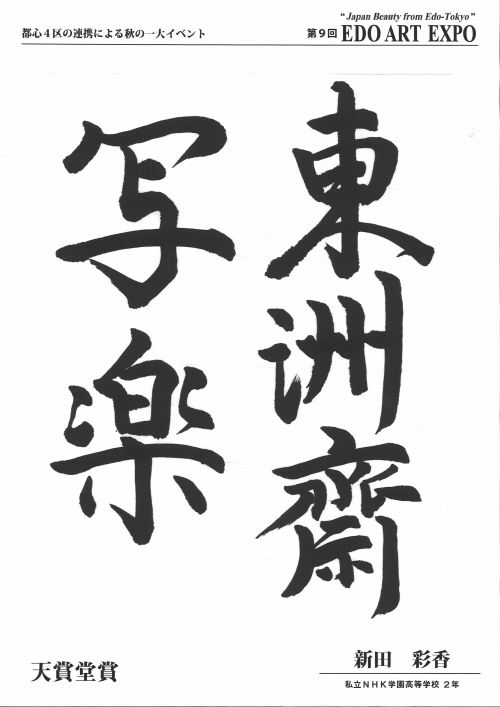 都心４区の連携による秋の一大イベント
“Japan Beauty from Edo-Tokyo”
第９回 EDO ART EXPO
東洲齋
写楽
天賞堂賞
新田　彩香
私立ＮＨＫ学園高等学校 ２年